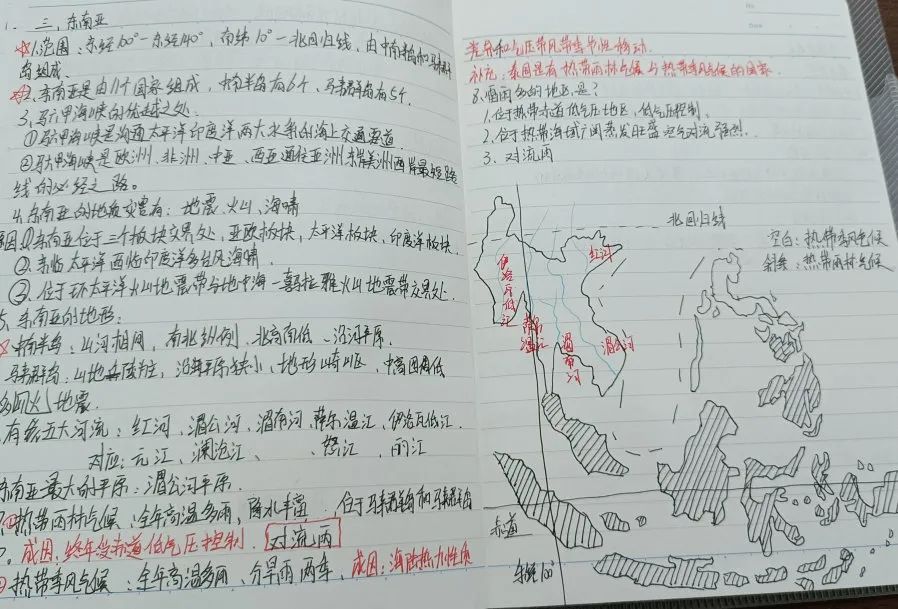 三、东南亚
☆1.范围:东经100°-东经140°,南纬10°-北回归线,由中南半岛和马来群
岛组成.
☆2.东南亚是由11个国家组成,中南半岛有6个,马来群岛有5个.
3.马六甲海峡的优越之处:
①马六甲海峡是沟通太平洋印度洋两大水系的海上交通要道
②马六甲海峡是欧洲、非洲、中亚、西亚通往亚洲东岸美洲西岸最短路
线的必经之路。
4.东南亚的地质灾害有:地震、火山、海啸
原因①东南亚位于三个板块交界处,亚欧板块,太平洋板块,印度洋板块.
②东临太平洋西临印度洋多台风海啸.
③位于环太平洋火山地震带与地中海-喜马拉雅火山地震带交界处.
5、东南亚的地形:
☆中南半岛:山河相间,南北纵列、北高南低、沿河平原.
马来群岛:山地陡,沿海平原狭小、地形崎岖、中高四周低
多火山地震.
有给五大河流:红河、湄公河、湄南河、萨尔温江、伊洛瓦底江.
对应:元江、澜沧江、、怒江、丽江
东南亚最大的平原:湄公河平原.
①热带雨林气候:全年高温多雨,降水丰富.位于马来群岛和马来半岛
成因:终年受赤道低气压控制.对流雨
热带季风气候:全年高温多雨、分旱雨两季,成因:海陆热力性质
差异和气压带风带季节性移动.
补充:泰国是有热带雨林气候与热带季风气候的国家.
8.雷雨多的地区是?
1.位于热带赤道低气压地区,低气压控制.
2.位于热带海域广阔蒸发旺盛空气对流强烈.
3.对流雨
北回归线
空白:热带季风气候
斜条:热带雨林气候
红河
伊洛瓦底江
萨尔温江
湄南河
湄公河
赤道
东经100°